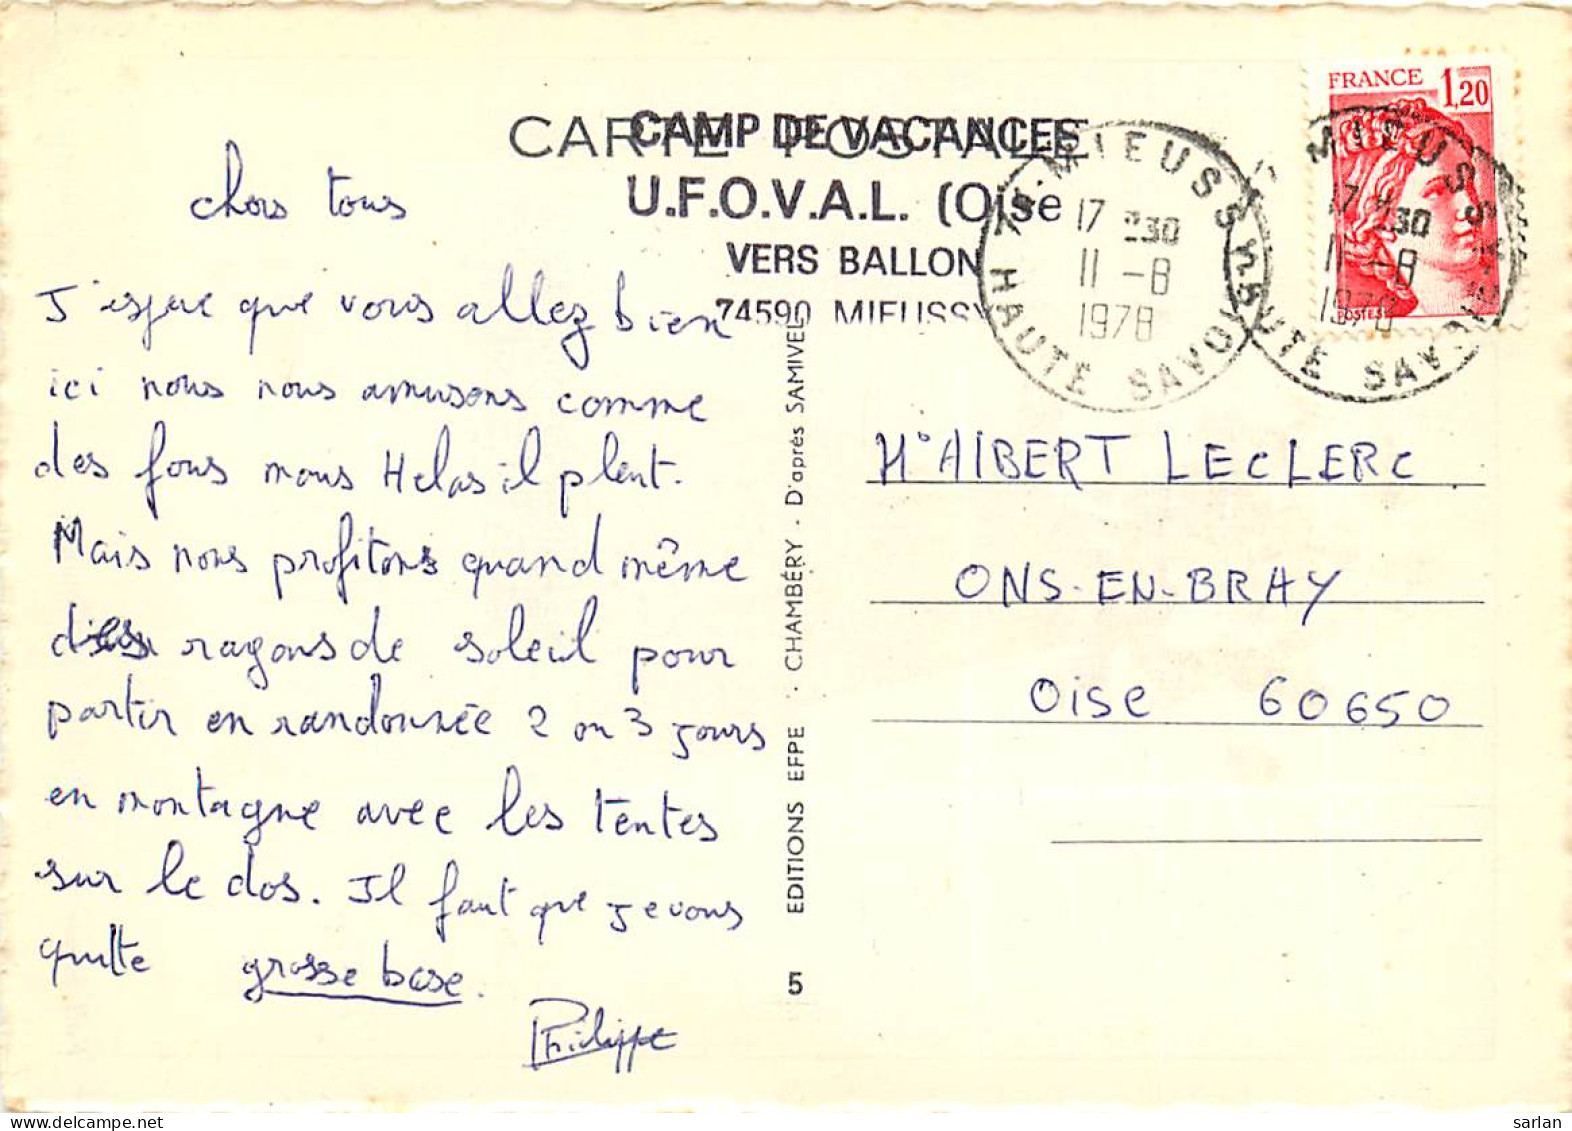 CARTE POSTALE
CAMP DE VACANCES
U.F.O.V.A.L. (Oise
VERS BALLON
74590 MIEUSSY
74-MIEUSSY
17 H30
11 -8
1978
HAUTE SAVOIE
FRANCE 1,20
POSTES
MIEUSSY
17 H30
11 -8
1978
HAUTE SAVOIE
chers tous
J'espère que vous allez bien
ici nous nous amusons comme
des fous mais Helas il pleut.
Mais nous profitons quand même
des rayons de soleil pour
partir en randonnée 2 ou 3 jours
en montagne avec les tentes
sur le dos. Il faut que je vous
quitte grosse base.
Philippe
EDITIONS EFPE · CHAMBÉRY · D'après SAMIVEL
5
Mr AlBERT LECLERC
ONS-EN-BRAY
Oise 60650
sarlan